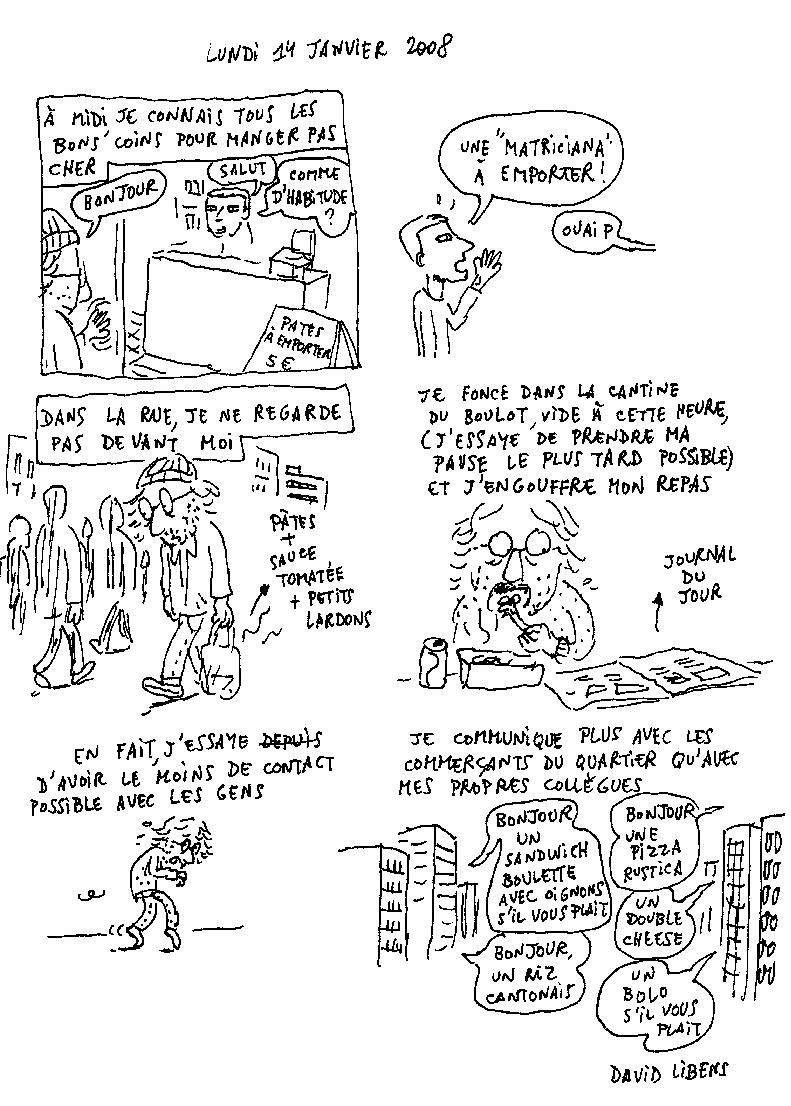 LUNDI 14 JANVIER 2008
À MIDI JE CONNAIS TOUS LES
BONS COINS POUR MANGER PAS
CHER
BONJOUR
SALUT
COMME
D'HABITUDE
?
PATES
À EMPORTER
5 €
UNE "MATRICIANA"
À EMPORTER!
OUAIP
DANS LA RUE, JE NE REGARDE
PAS DEVANT MOI
PÂTES
+
SAUCE
TOMATÉE
+ PETITS
LARDONS
JE FONCE DANS LA CANTINE
DU BOULOT, VIDE À CETTE HEURE,
(J'ESSAYE DE PRENDRE MA
PAUSE LE PLUS TARD POSSIBLE)
ET J'ENGOUFFRE MON REPAS
JOURNAL
DU
JOUR
EN FAIT, J'ESSAYE DEPUIS
D'AVOIR LE MOINS DE CONTACT
POSSIBLE AVEC LES GENS
JE COMMUNIQUE PLUS AVEC LES
COMMERÇANTS DU QUARTIER QU'AVEC
MES PROPRES COLLÈGUES
BONJOUR
UN
SANDWICH
BOULETTE
AVEC OIGNONS
S'IL VOUS PLAIT
BONJOUR,
UN RIZ
CANTONAIS
BONJOUR
UNE
PIZZA
RUSTICA
UN
DOUBLE
CHEESE
UN
BOLO
S'IL VOUS
PLAIT
DAVID LIBENS